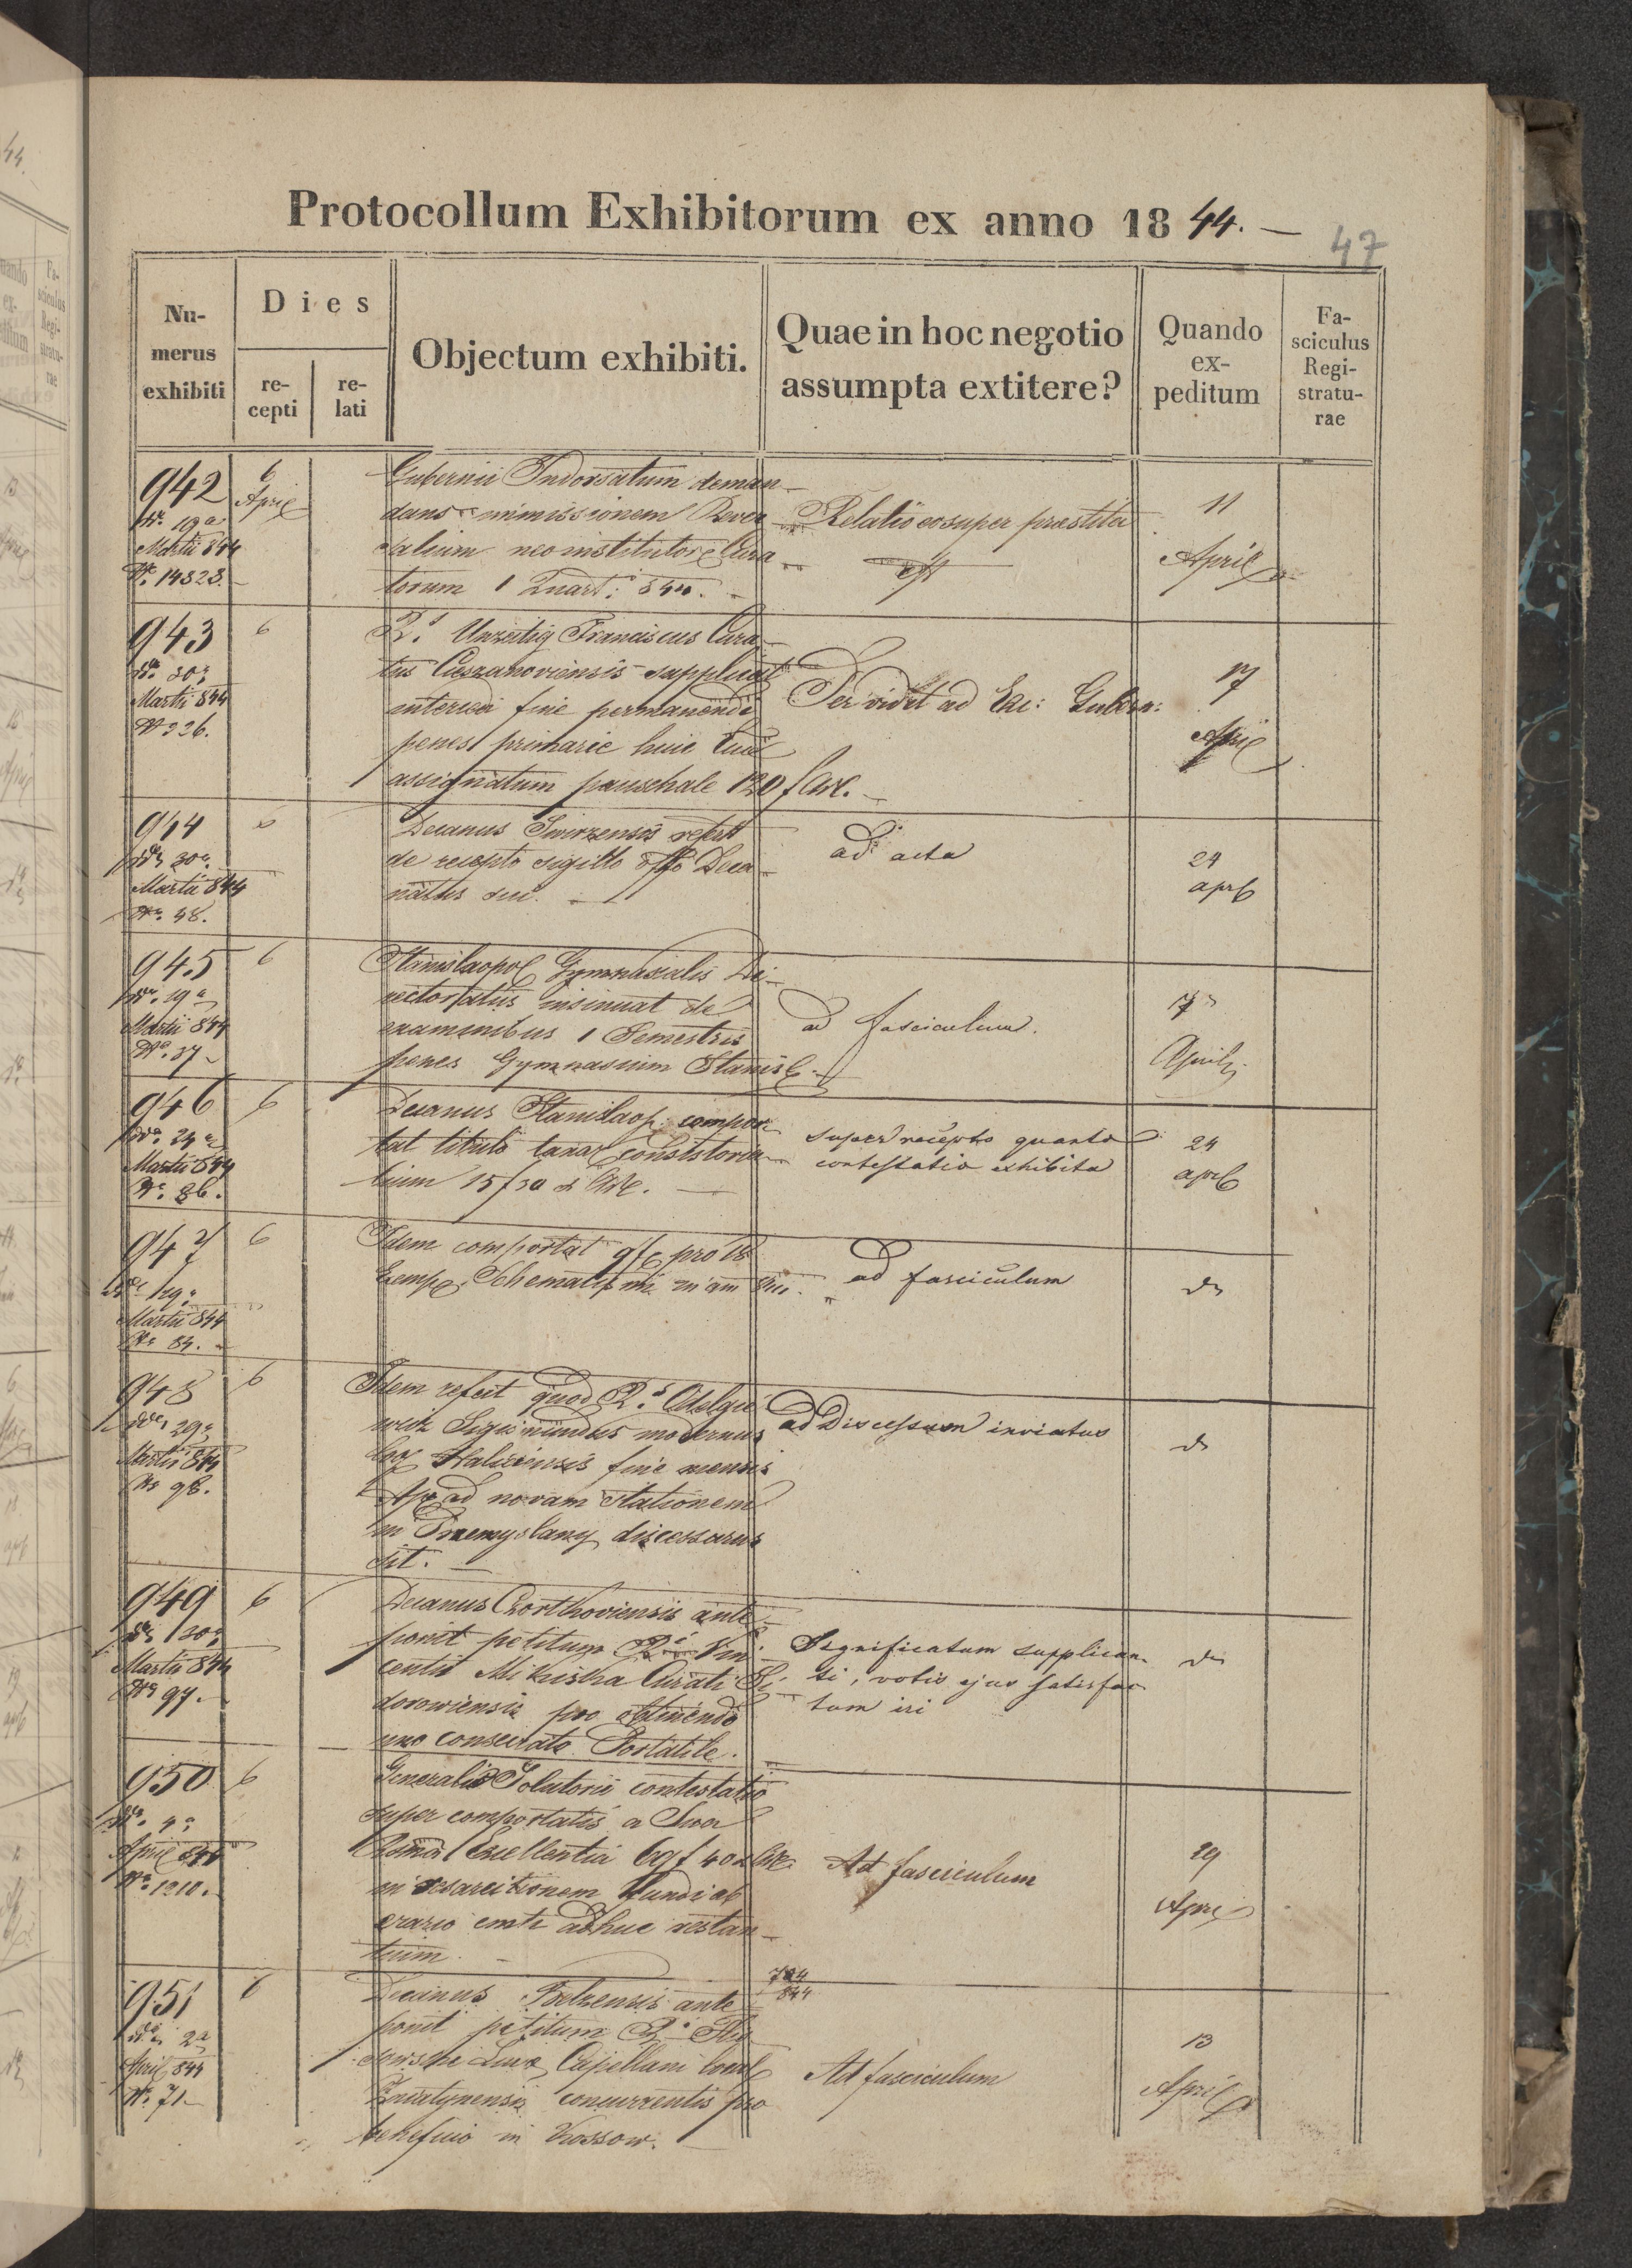 Protocollum Exhibitorum ex anno 1844. —
47
Nu-
merus
exhibiti
Dies
re-
cepti
re-
lati
Objectum exhibiti.
Quae in hoc negotio
assumpta extitere?
Quando
ex-
peditum
Fa-
sciculus
Regi-
stratu-
rae
942
19a
Martii 844
Nr. 14323.
6
April
Gubernii Indorsatum deman
dans immissionem Rever
salium neoinstitutor Cura
torum 1 Quart: 844.
Relatio eosuper praestita
est
11
April
943
30a
Martii 844
Nr 326.
6
Rs Unzeitig Franciscus Cura
tus Cieszanoviensis supplicat
interea fine permanendi
penes primarie huic Curae
assignatum pauschale 120 f Cx.
Per vidit ad Exc: Gubern:
17
April
944
30a
Martii 844
Nr. 48.
6
Decanus Swirzensis refert
de recepto sigillo offo Deca
natus sui.
ad acta
24
april
945
19a
Martii 844
Nr. 37
6
Stanislaopol Gymnasialis Di-
rectoratus insinuat de
examinibus 1 Semestris
penes Gymnasium Stanisl.
ad fasciculum.
17
April
946
24a
Martii 844
Nr. 86.
6
Decanus Stanislaop. compor
tat titulo taxar consistoria
lium 15 f 30 x
super recepto quanto
contestatio exhibita
24
april
947
29a
Martii 844
Nr 84.
6
Idem comportat 9 f pro 18
Exemp. Schematismi
ad fasciculum
do
948
29a
Martii 844
Nr 98.
6
Idem refert quod Rs Odelgie
wicz Sigismundus modernus
Haliciensis fine mensis
Apr ad novam stationem
in Przemyslany discessurus
sit.
ad Discessum inviatus
do
949
30a
Martii 844
Nr 97.
6
Decanus Czortkoviensis ante
ponit petitum Ri Vin
centii Mikustha Curati Si
dorowiensis pro obtinendo
uno consecrato Portatile.
Significatum supplican
ti, votis ejus satisfac
tum iri
do
950
4a
April 844
Nr. 1210.
6
Generalis Solutorii contestatio
super comportatis a Sua
Excellentia 69 f 40 x
in resarcitionem fundi ab
erario emti adhuc restan
tium.
Ad fasciculum
29
April
951
2a
April 844
Nr. 71
6
Decanus Belzensis ante
ponit petitum Ri
Luca Capellani local
Zniatynensis concurrentis pro
beneficio in Kossow.
704
844
Ad fasciculum
13
April